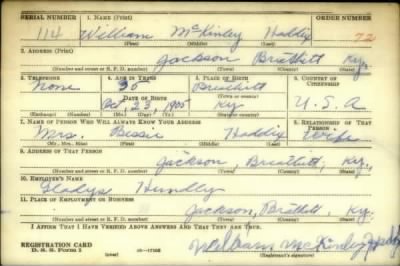 SERIAL NUMBER 1. NAME (Print)
114 William McKinley Haddix 72
(First) (Middle) (Last)
2. ADDRESS (Print)
Jackson Breathitt Ky.
(Number and street or R. F. D. number) (Town) (County) (State)
3. TELEPHONE 4. AGE IN YEARS 5. PLACE OF BIRTH 6. COUNTRY OF CITIZENSHIP
None 35 Breathitt
DATE OF BIRTH (Town or county)
Oct, 23, 1905 Ky U. S. A
(Exchange) (Number) (Mo.) (Day) (Yr.) (State or country)
7. NAME OF PERSON WHO WILL ALWAYS KNOW YOUR ADDRESS 8. RELATIONSHIP OF THAT PERSON
Mrs. Bessie Haddix Wife
(Mr., Mrs., Miss) (First) (Middle) (Last)
9. ADDRESS OF THAT PERSON
Jackson, Breathitt, Ky.
(Number and street or R. F. D. number) (Town) (County) (State)
10. EMPLOYER'S NAME
Gladys Hundley
11. PLACE OF EMPLOYMENT OR BUSINESS
Jackson, Breathitt, Ky.
(Number and street or R. F. D. number) (Town) (County) (State)
I AFFIRM THAT I HAVE VERIFIED ABOVE ANSWERS AND THAT THEY ARE TRUE.
REGISTRATION CARD
D. S. S. Form 1 William McKinley Haddix
(Registrant's signature)